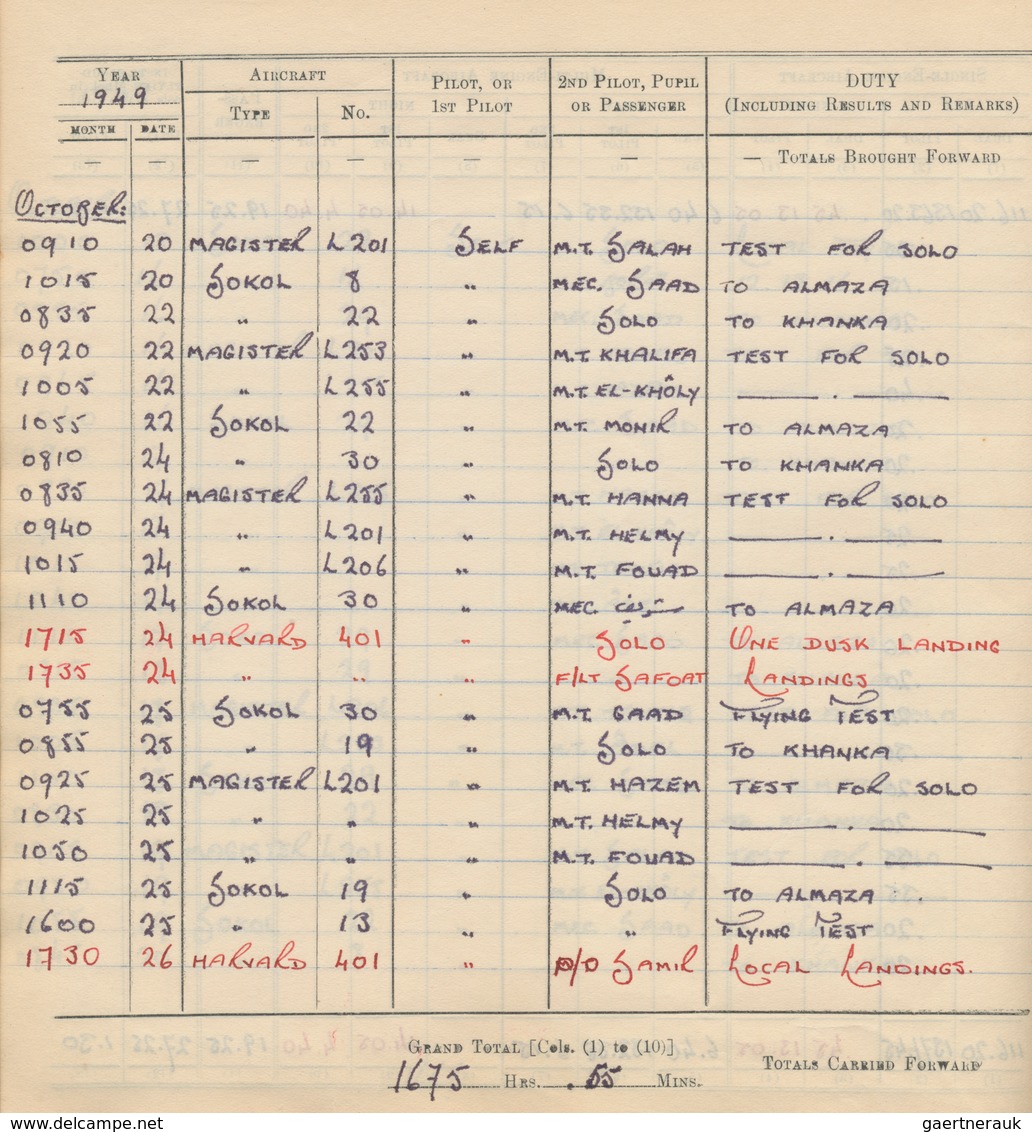 YEAR AIRCRAFT PILOT, OR 1ST PILOT 2ND PILOT, PUPIL OR PASSENGER DUTY (INCLUDING RESULTS AND REMARKS)
1949 TYPE NO.
MONTH DATE
— — — — — — — TOTALS BROUGHT FORWARD
OCTOBER:
0910 20 MAGISTER L201 SELF M.T. SALAH TEST FOR SOLO
1015 20 SOKOL 8 " MEC. SAAD TO ALMAZA
0835 22 " 22 " SOLO TO KHANKA
0920 22 MAGISTER L253 " M.T. KHALIFA TEST FOR SOLO
1005 22 " L255 " M.T. EL-KHÔLY —— . ——
1055 22 SOKOL 22 " M.T. MONIR TO ALMAZA
0810 24 " 30 " SOLO TO KHANKA
0835 24 MAGISTER L255 " M.T. HANNA TEST FOR SOLO
0940 24 " L201 " M.T. HELMY —— . ——
1015 24 " L206 " M.T. FOUAD —— . ——
1110 24 SOKOL 30 " MEC. TO ALMAZA
1715 24 HARVARD 401 " SOLO ONE DUSK LANDING
1735 24 " " " F/LT SAFOAT LANDINGS
0755 25 SOKOL 30 " M.T. GAAD FLYING TEST
0855 25 " 19 " SOLO TO KHANKA
0925 25 MAGISTER L201 " M.T. HAZEM TEST FOR SOLO
1025 25 " " " M.T. HELMY —— . ——
1050 25 " " " M.T. FOUAD —— . ——
1115 25 SOKOL 19 " SOLO TO ALMAZA .
1600 25 " 13 " " FLYING TEST
1730 26 HARVARD 401 " P/O SAMIR LOCAL LANDINGS.
GRAND TOTAL [Cols. (1) to (10)]
1675 HRS. 55 MINS. TOTALS CARRIED FORWARD
gaertnerauk